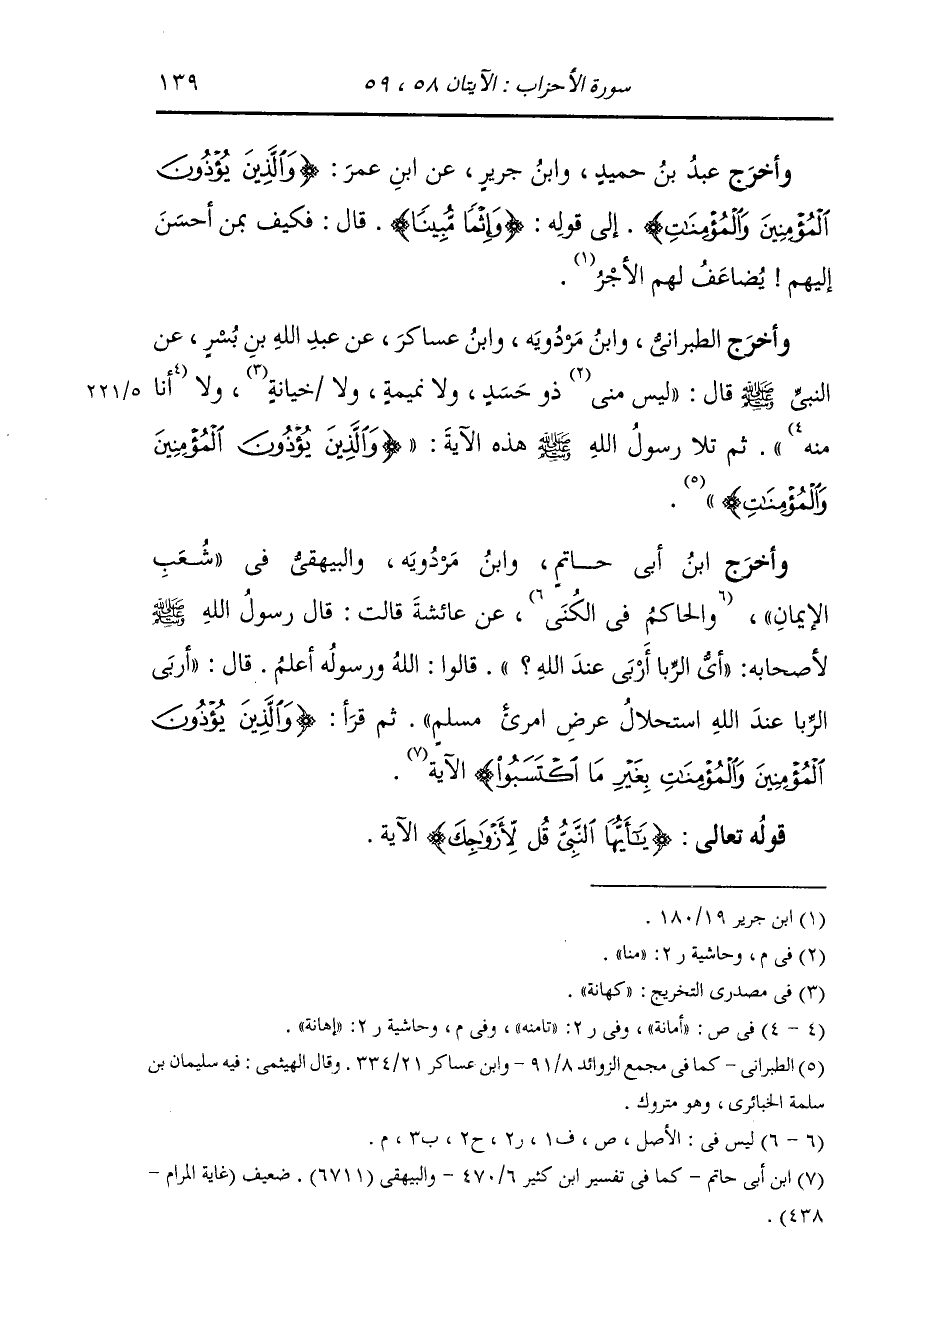 سورة الأحزاب : الآيتان ٥٨ ، ٥٩ ١٣٩
وأخرَج عبدُ بنُ حميدٍ ، وابنُ جريرٍ ، عن ابنِ عمرَ : ﴿وَٱلَّذِينَ يُؤْذُونَ
ٱلْمُؤْمِنِينَ وَٱلْمُؤْمِنَٰتِ﴾ . إلى قولِه : ﴿وَإِثْمًا مُّبِينًا﴾ . قال : فكيف بمن أحسَنَ
إليهم ! يُضاعَفُ لهم الأجْرُ(١) .
وأخرَج الطبرانىُّ ، وابنُ مَرْدُويَه ، وابنُ عساكرَ ، عن عبدِ اللهِ بنِ بُسْرٍ ، عن
النبىِّ ﷺ قال : «ليس منى(٢) ذو حَسَدٍ ، ولا نميمةٍ ، ولا /خيانةٍ(٣) ، ولا (٤)أنا ٢٢١/٥
منه(٤) » . ثم تلا رسولُ اللهِ ﷺ هذه الآيةَ : « ﴿وَٱلَّذِينَ يُؤْذُونَ ٱلْمُؤْمِنِينَ
وَٱلْمُؤْمِنَٰتِ﴾ »(٥) .
وأخرَج ابنُ أبى حـاتمٍ ، وابنُ مَرْدُويَه ، والبيهقىُّ فى «شُعَبِ
الإيمانِ» ، (٦)والحاكمُ فى الكُنَى(٦) ، عن عائشةَ قالت : قال رسولُ اللهِ ﷺ
لأصحابه: «أىُّ الرِّبا أَرْبَى عندَ اللهِ ؟ » . قالوا : اللهُ ورسولُه أعلمُ . قال : «أربَى
الرِّبا عندَ اللهِ استحلالُ عرضِ امرئً مسلمٍ» . ثم قرَأ : ﴿وَٱلَّذِينَ يُؤْذُونَ
ٱلْمُؤْمِنِينَ وَٱلْمُؤْمِنَٰتِ بِغَيْرِ مَا ٱكْتَسَبُوا۟﴾ الآية(٧) .
قولُه تعالى : ﴿يَٰٓأَيُّهَا ٱلنَّبِىُّ قُل لِّأَزْوَٰجِكَ﴾ الآية .
(١) ابن جرير ١٨٠/١٩ .
(٢) فى م ، وحاشية ر ٢: «منا» .
(٣) فى مصدرى التخريج : «كهانة» .
(٤ - ٤) فى ص : «أمانة» ، وفى ر ٢: «تامنه» ، وفى م ، وحاشية ر ٢: «إهانة» .
(٥) الطبرانى - كما فى مجمع الزوائد ٩١/٨ - وابن عساكر ٣٣٤/٢١ . وقال الهيثمى : فيه سليمان بن
سلمة الخبائرى ، وهو متروك .
(٦ - ٦) ليس فى : الأصل ، ص ، ف١ ، ر٢ ، ح٢ ، ب٣ ، م .
(٧) ابن أبى حاتم - كما فى تفسير ابن كثير ٤٧٠/٦ - والبيهقى (٦٧١١) . ضعيف (غاية المرام -
٤٣٨) .